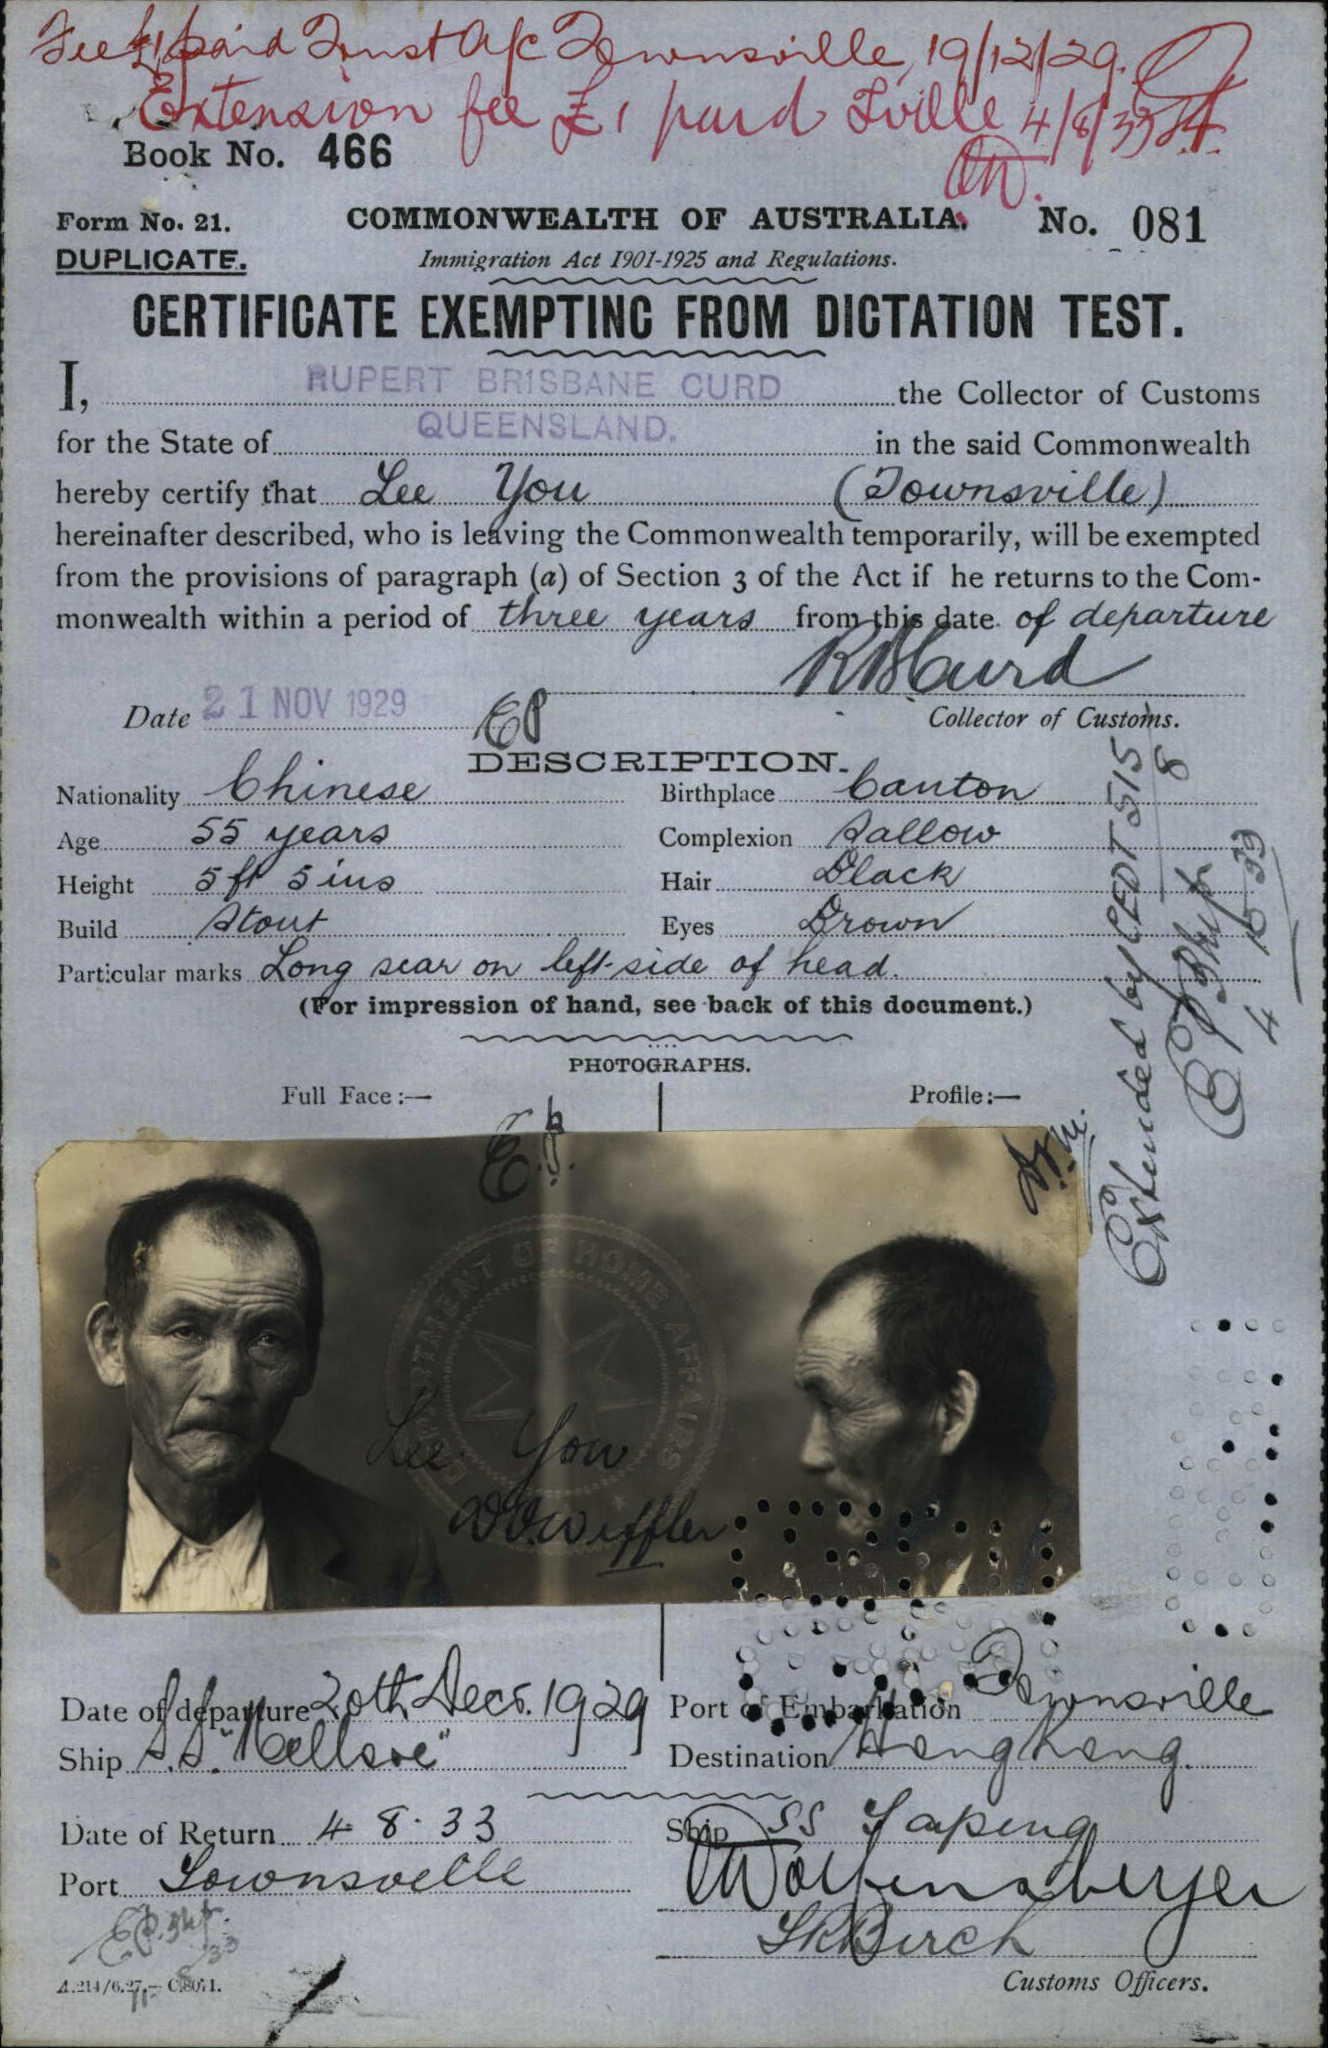 Fee £1 paid Trust A/c Townsville, 19/12/29.
Extension fee £1 paid Tville 4/8/33
Book No. 466
Form No. 21.
COMMONWEALTH OF AUSTRALIA.
No. 081
DUPLICATE.
Immigration Act 1901-1925 and Regulations.
CERTIFICATE EXEMPTING FROM DICTATION TEST.
I, RUPERT BRISBANE CURD the Collector of Customs
for the State of QUEENSLAND. in the said Commonwealth
hereby certify that Lee You (Townsville)
hereinafter described, who is leaving the Commonwealth temporarily, will be exempted
from the provisions of paragraph (a) of Section 3 of the Act if he returns to the Com-
monwealth within a period of three years from this date of departure
R B Curd
Date 21 NOV 1929
EP
Collector of Customs.
DESCRIPTION.
Nationality Chinese
Birthplace Canton
Age 55 years
Complexion Sallow
Height 5 ft 5 ins
Hair Black
Build Stout
Eyes Brown
Particular marks Long scar on left side of head.
(For impression of hand, see back of this document.)
Extended by CEDT 515/8
4 10 33
PHOTOGRAPHS.
Full Face:—
Profile:—
E.P.
DEPARTMENT OF HOME AFFAIRS
Lee You
Date of departure 20th Decr. 1929
Port of Embarkation Townsville
Ship S.S.
Destination Hong Kong.
Date of Return 4 . 8 . 33
Ship SS Taping
Port Townsville
Birch
A.214/6.27.— C.8071.
Customs Officers.